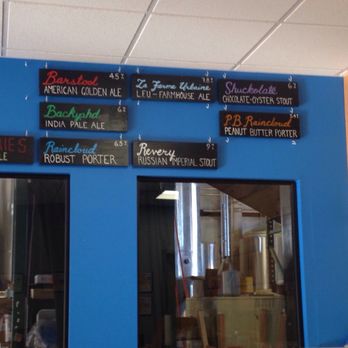 Barstool 4.5%
AMERICAN GOLDEN ALE
La Ferme Urbaine
FARMHOUSE ALE
Shuckolate 6%
CHOCOLATE-OYSTER STOUT
Backyphd 6%
INDIA PALE ALE
P.B. Raincloud
PEANUT BUTTER PORTER
RIES
LE
Raincloud 6.5%
ROBUST PORTER
Revery 9%
RUSSIAN IMPERIAL STOUT